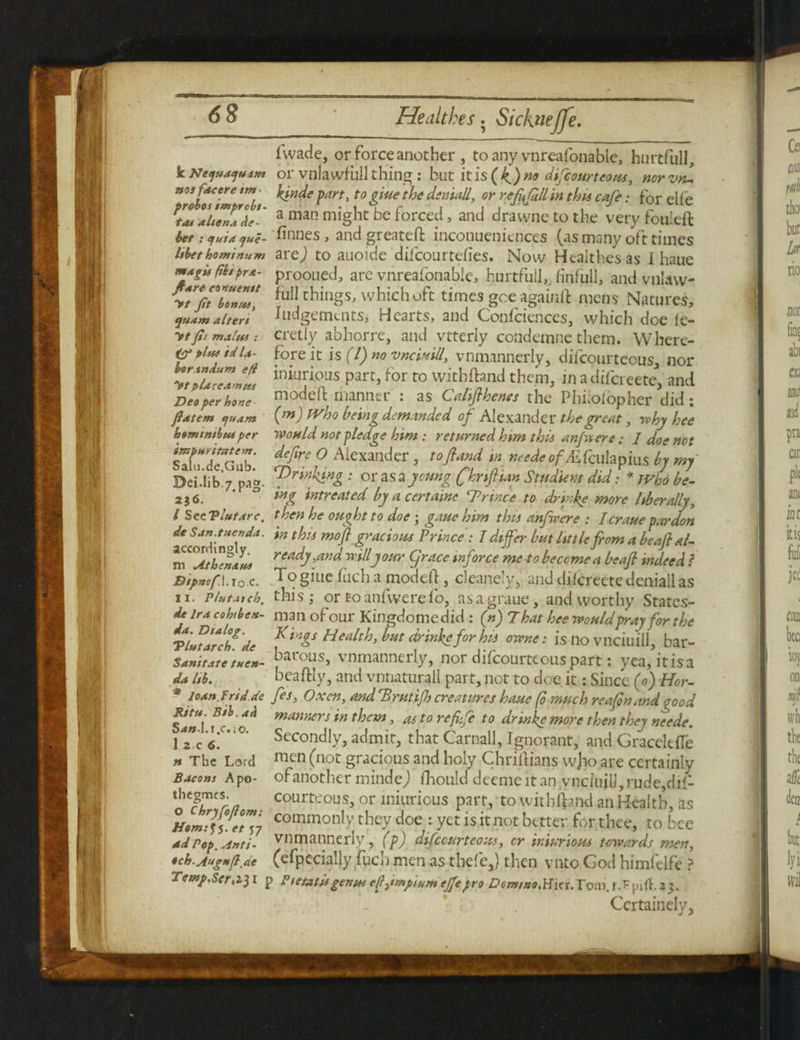 68
Healthes; Sickneſſe.
ſwade, or force another, to any vnreaſonable, hurtfull,
or vnlawfull thing: but it is (k) no diſcourteous, nor vn-
kinde part, to giue the deniall, or refuſall in this caſe: for elſe
a man might be forced, and drawne to the very fouleſt
ſinnes, and greateſt inconueniences (as many oft times
are) to auoide diſcourteſies. Now Healthes as I haue
prooued, are vnreaſonable, hurtfull, ſinfull, and vnlaw-
full things, which oft times goe againſt mens Natures,
Iudgements, Hearts, and Conſciences, which doe ſe-
cretly abhorre, and vtterly condemne them. Where-
fore it is (l) no vnciuill, vnmannerly, diſcourteous, nor
iniurious part, for to withſtand them, in a diſcreete, and
modeſt manner: as Caliſthenes the Philoſopher did:
(m) Who being demanded of Alexander the great, why hee
would not pledge him: returned him this anſwere: I doe not
deſire O Alexander, to ſtand in neede of Æſculapius by my
Drinking: or as a young Chriſtian Student did: * Who be-
ing intreated by a certaine Prince to drinke more liberally,
then he ought to doe; gaue him this anſwere: I craue pardon
in this moſt gracious Prince: I differ but little from a beaſt al-
ready, and will your Grace inforce me to become a beaſt indeed?
To giue ſuch a modeſt, cleanely, and diſcreete deniall as
this; or to anſwere ſo, as a graue, and worthy States-
man of our Kingdome did: (n) That hee would pray for the
Kings Health, but drinke for his owne: is no vnciuill, bar-
barous, vnmannerly, nor diſcourteous part: yea, it is a
beaſtly, and vnnaturall part, not to doe it: Since (o) Hor-
ſes, Oxen, and Brutiſh creatures haue ſo much reaſon and good
manners in them, as to refuſe to drinke more then they neede.
Secondly, admit, that Carnall, Ignorant, and Graceleſſe
men (not gracious and holy Chriſtians who are certainly
of another minde) ſhould deeme it an vnciuill, rude, diſ-
courteous, or iniurious part, to withſtand an Health, as
commonly they doe: yet is it not better for thee, to bee
vnmannerly, (p) diſcourteous, or iniurious towards men,
(eſpecially ſuch men as theſe,) then vnto God himſelfe?
Certainely,
k Nequaquam
nos facere im-
probos improbi-
tas aliena de-
bet: quia que-
libet hominum
magis ſibi præ-
ſtare conuenit
vt ſit bonus,
quam alteri
vt ſit malus:
& plus id la-
borandum eſt
vt placeamus
Deo per hone-
ſtatem quam
hominibus per
impuritatem.
Salu. de. Gub.
Dei. lib. 7. pag.
236.
l See Plutarc.
de San. tuenda.
accordingly.
m Athenæus
Dipnoſ. l. 10 c.
11. Plutarch.
de Ira cohiben-
da. Dialog.
Plutarch. de
Sanitate tuen-
da lib.
* Ioan. Frid. de
Ritu. Bib. ad
San. l. 1. c. 10.
l 2 c 6.
n The Lord
Bacons Apo-
thegmes.
o Chryſoſtom:
Hom: 55. et 57
ad Pop. Anti-
och. Auguſt. de
Temp. Ser, 231
p Pietatis genus eſt, impium eſſe pro Domino. Hier. Tom. 1. Epiſt. 23.